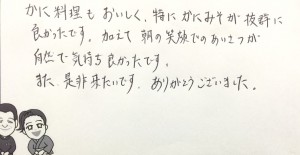 かに料理もおいしく、特にかにみそが抜群に
良かったです。加えて朝の笑顔でのあいさつが
自然で気持ち良かったです。
また、是非来たいです。ありがとうございました。